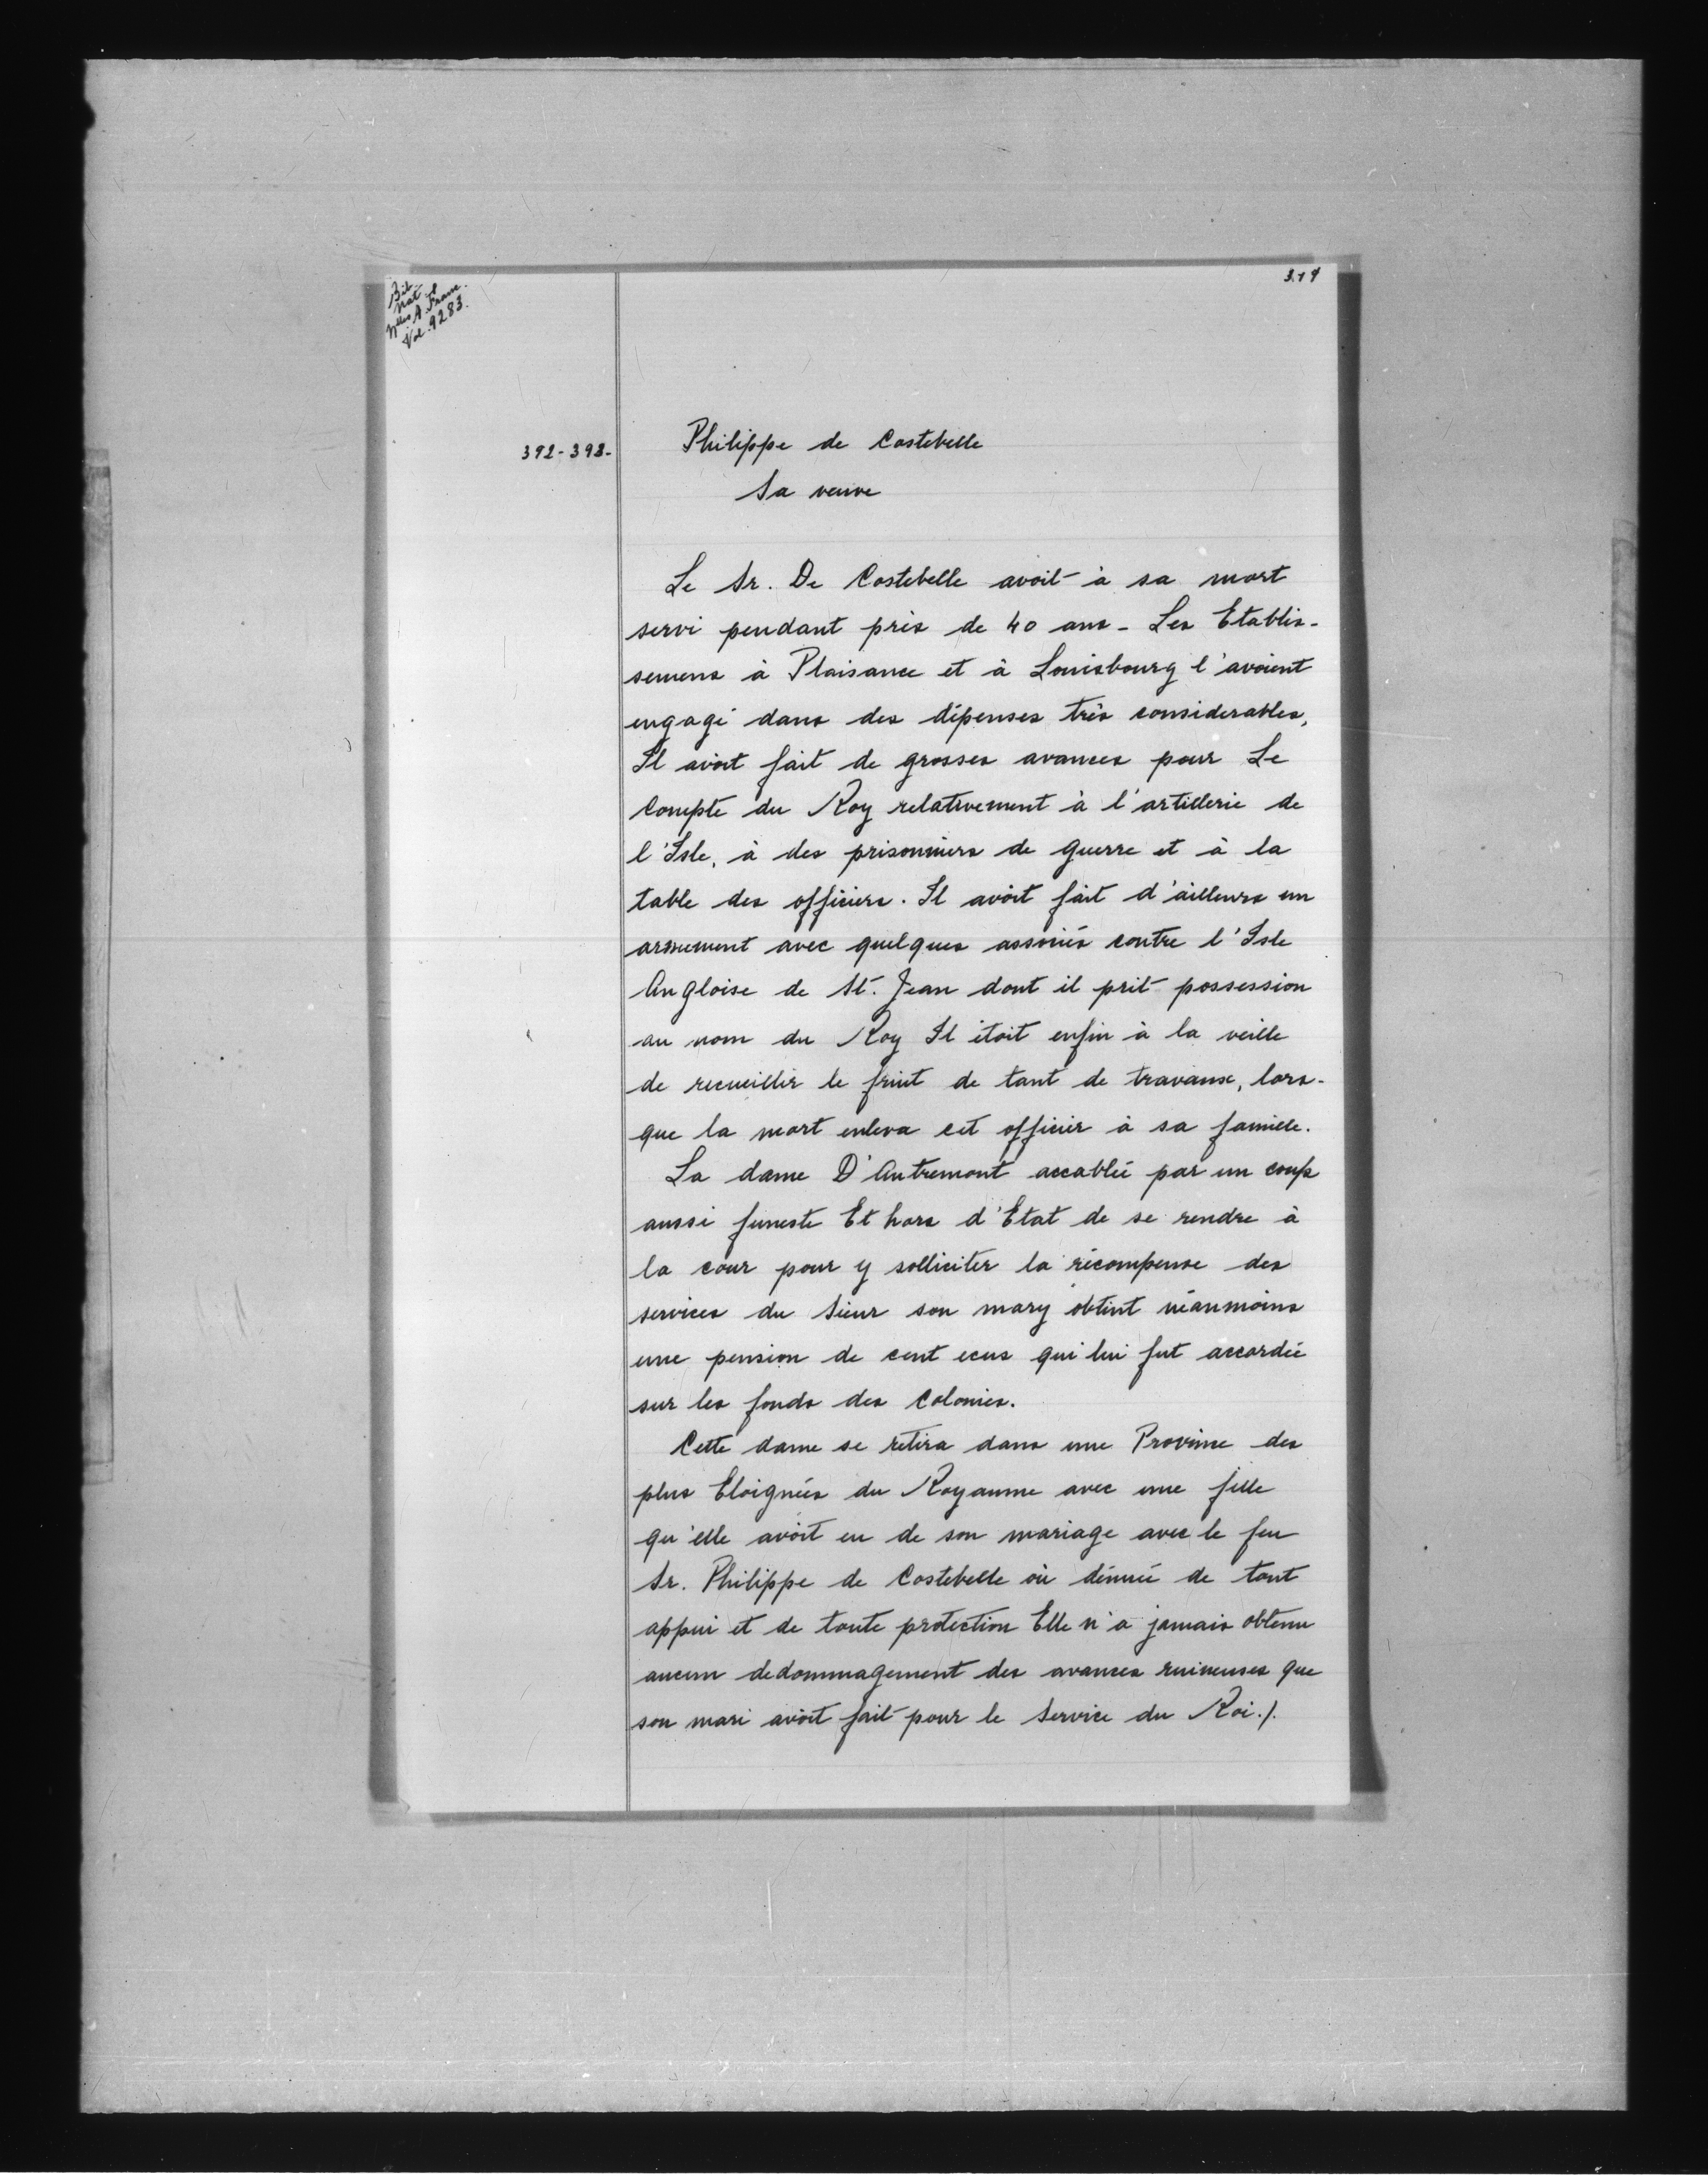 Bib.
Nat.
Nlles A. Franc.
Vol. 9283.
392-393-
Philippe de Costebelle
Sa veuve
Le Sr. De Costebelle avoit à sa mort
servi pendant près de 40 ans - Les Etablis-
semens à Plaisance et à Louisbourg l'avoient
engagé dans des dépenses très considerables,
Il avoit fait de grosses avances pour Le
Compte du Roy relativement à l'artillerie de
l'Isle, à des prisonniers de guerre et à la
table des officiers. Il avoit fait d'ailleurs un
armement avec quelques associés contre l'Isle
Angloise de St. Jean dont il prit possession
au nom du Roy Il étoit enfin à la veille
de recueillir le fruit de tant de travaux, lors-
que la mort enleva cet officier à sa famille.
La dame D'Autremont accablée par un coup
aussi funeste Et hors d'Etat de se rendre à
la cour pour y solliciter la récompense des
services du Sieur son mary obtint néanmoins
une pension de cent ecus qui lui fut accordée
sur les fonds des Colonies.
Cette dame se retira dans une Province des
plus Eloignées du Royaume avec une fille
qu'elle avoit eu de son mariage avec le feu
Sr. Philippe de Costebelle où dénuée de tout
appui et de toute protection Elle n'a jamais obtenu
aucun dedommagement des avances ruineuses que
son mari avoit fait pour le Service du Roi./.